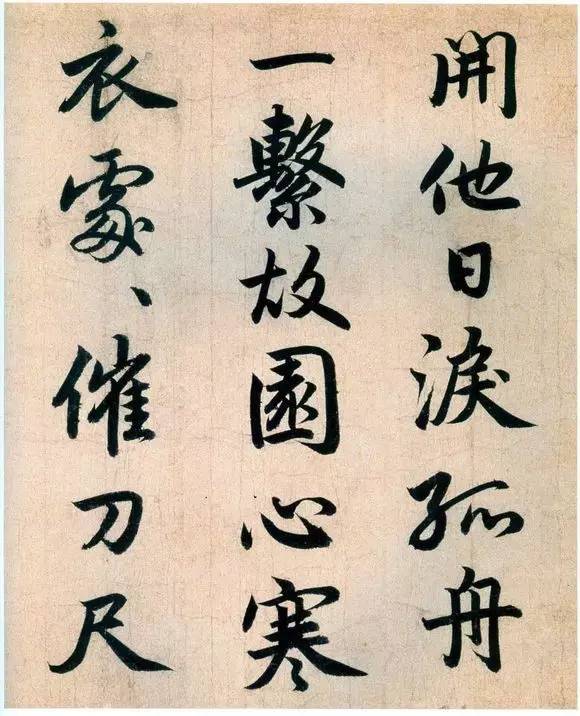 開他日淚孤舟
一繫故園心寒
衣處、催刀尺